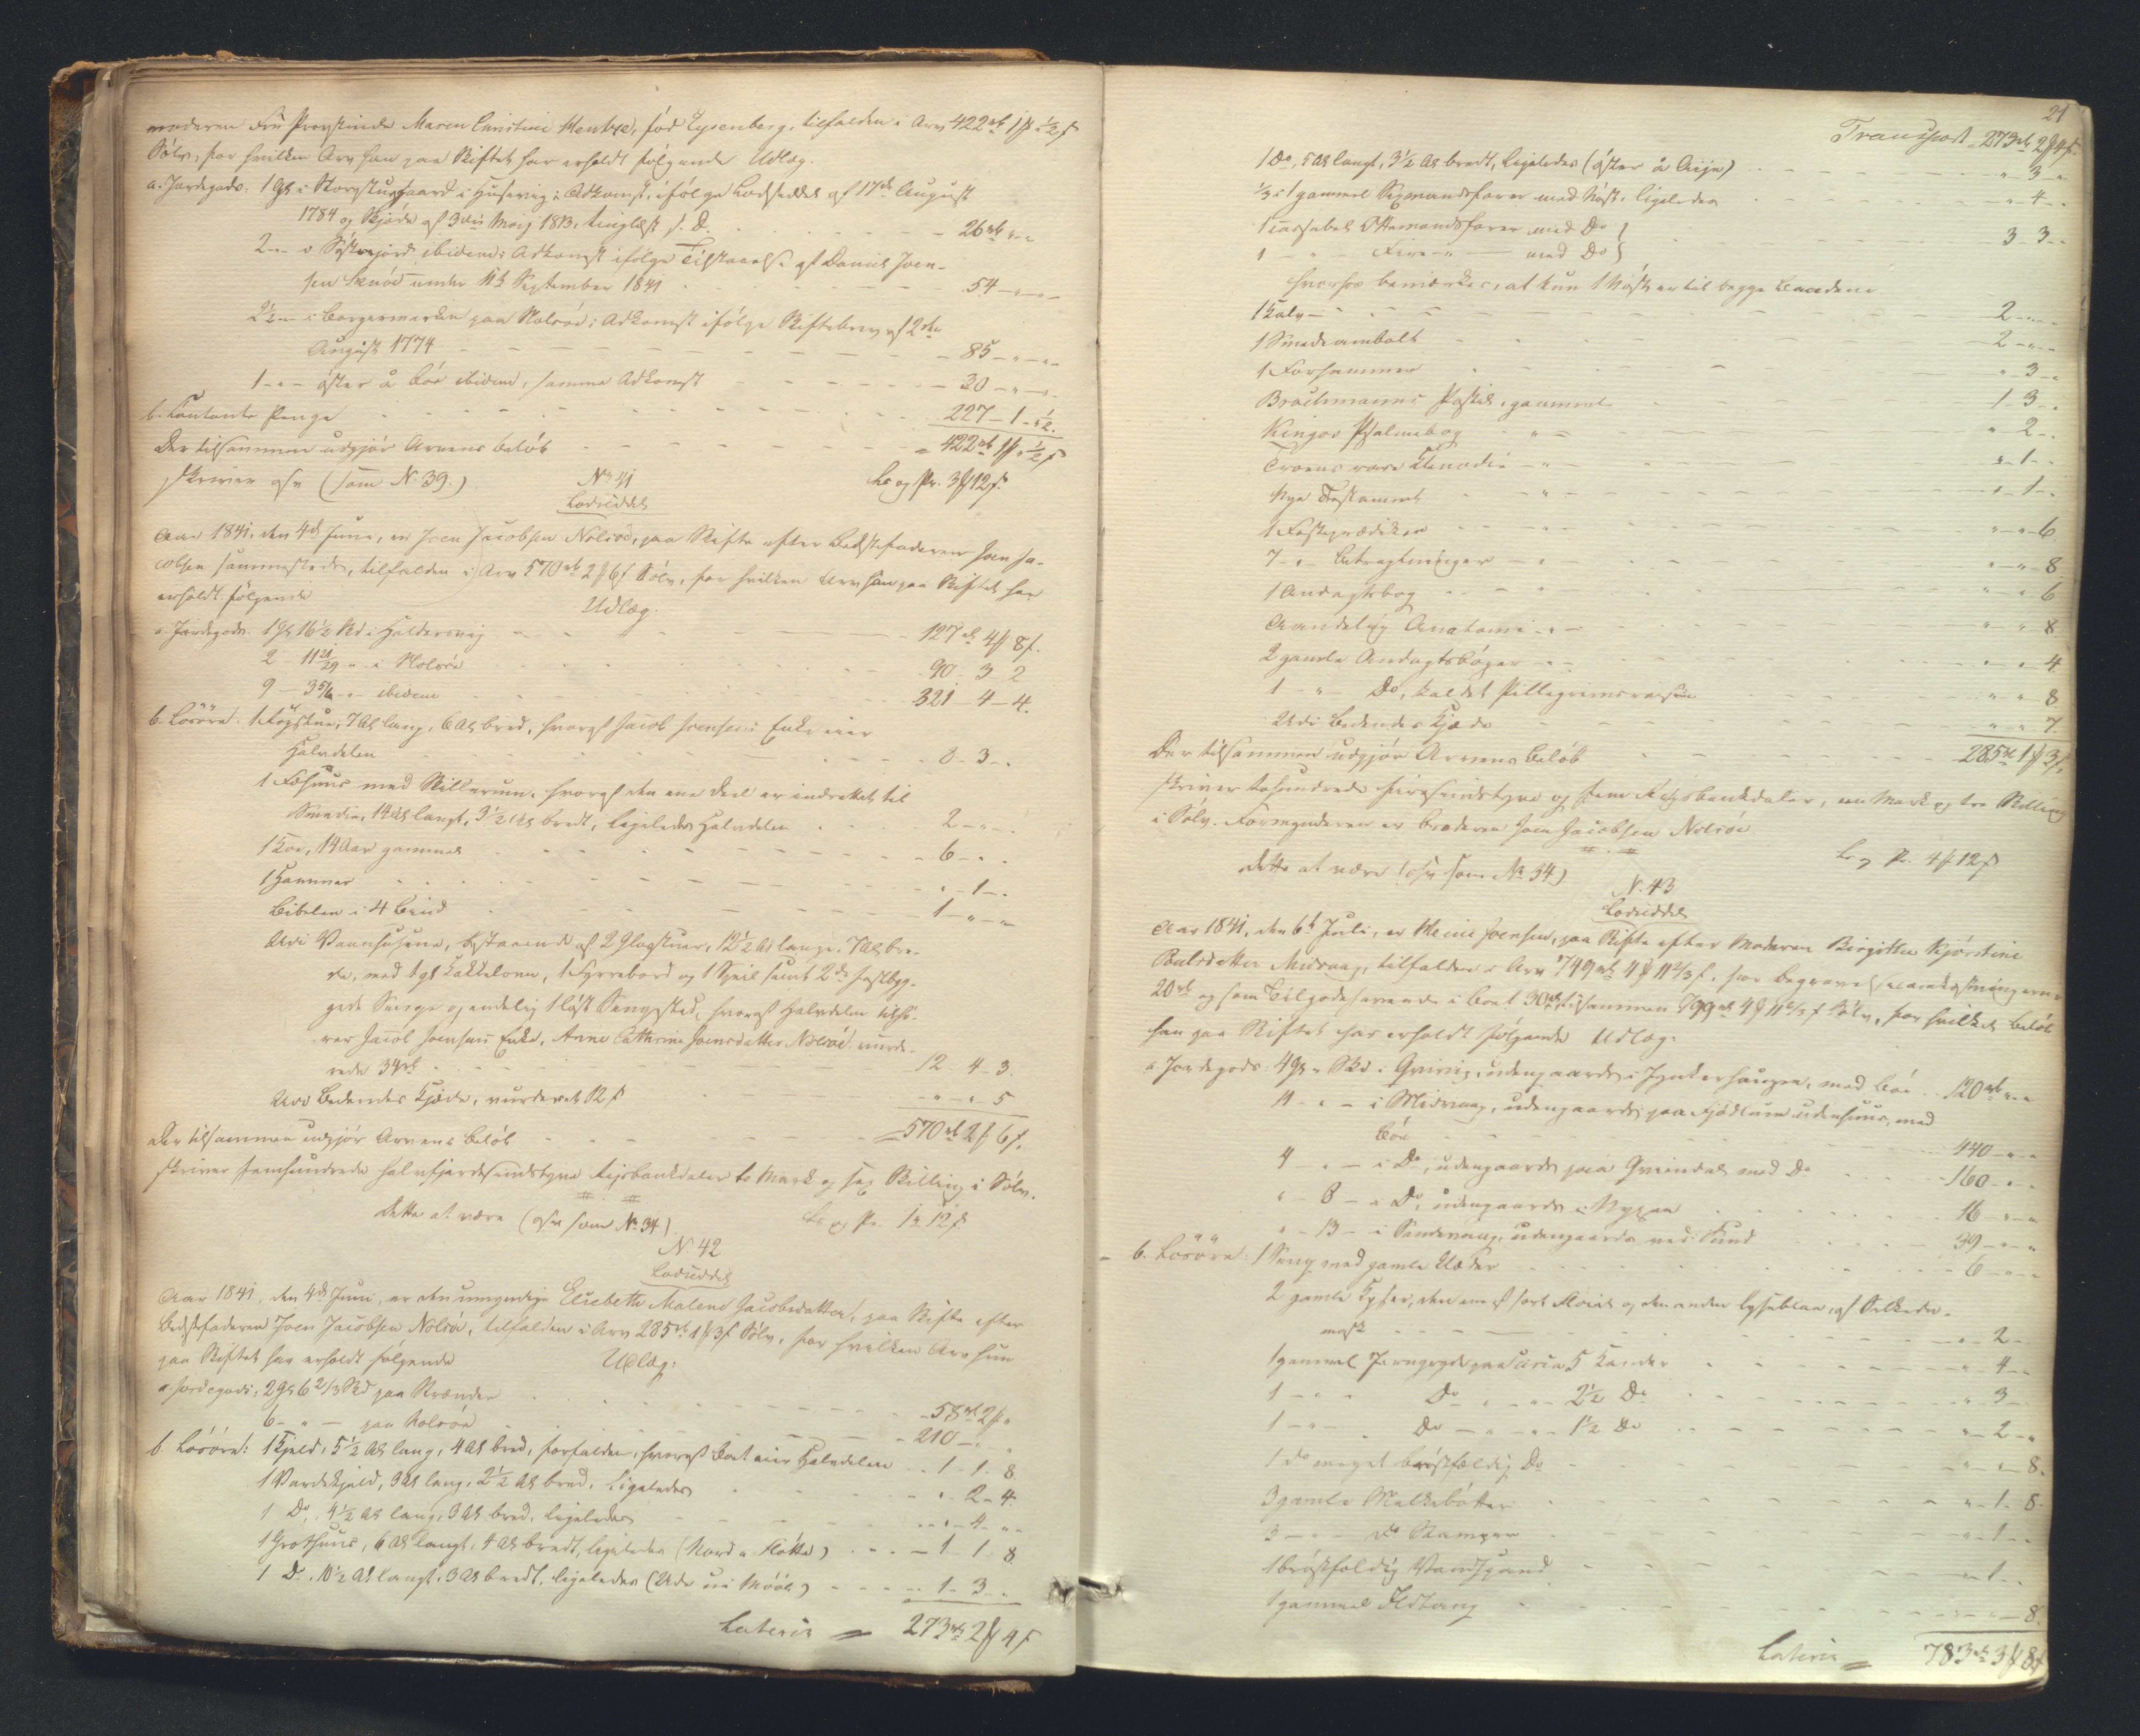 moderen Frú Provstinde Maren Christine Hentze, fød Lysenberg, tilfalden i Arv 422 rb 1 ß ½ s
Sølv, for hvilken Arv han paa Skiftet har erholdt følgende Udlæg.
a. Jordegods: 1 Gl i Storgstugaard i Húsevig; Adkomst, ifølge Lodseddel af 17de August
1784 og Skjøde af 3die Maij 1813, tinglæst s. D. 26 rb " "
2 - " ibidem; Adkomst ifølge Tilstaaelse af Daniel Joen-
sen Skuóe under 11te September 1841 54 - " - "
2½ - " i Borgarmarken paa Nolsøe; Adkomst ifølge Skiftebrev af 2den
August 1774 85 - " - "
1 - " - øster á Bøe ibidem, samme Adkomst 30 - " - "
b. Contante Penge 227 - 1 - ½.
Der tilsammen udgjør Arvens Beløb 422 rb 1 ß " ½ s
skriver osv (som N. 39.) Ls og Pr. 3 ß 12 s.
No 41
Lodseddel
Aar 1841, den 4de Juni, er Joen Jacobsen Nolsøe, paa Skifte efter Bedstefaderen Joen Ja-
cobsen sammesteds, tilfalden i Arv 570 rb 2 ß 6 s Sølv, for hvilken Arv han paa Skiftet har
erholdt følgende Udlæg.
a. Jordegods. 1 Gl 16½ Sk i Haldersvig 127 rb 4 ß 8 s.
2 - 11 21/29 " i Nolsøe 90 3 2
9 - 3 5/6 - " ibidem 321 4 - 4.
b. Løsøre: 1 Røgstue, 7 Al lang, 6 Al bred, hvoraf Jacob Joensens Enke eier
Halvdelen 8 - 3 - "
1 Fæhuus med Skillerum, hvoraf den ene Deel er indrettet til
Smedie, 14 Al langt, 3½ Al bredt, ligeledes Halvdelen 2 - " - "
1 Koe, 14 Aar gammel 6 - " "
1 Hammer " - 1 - "
Bibelen i 4 Bind 1 - " - "
Udi Vaanhusene, bestaaende af 2 Glasstuer, 12½ Al lange, 7 Al bre-
de, med 1 gl Kakkelovn, 1 Fyrrebord og 1 Speil samt 2de fastbyg-
gede Senge og endelig 1 løst Sengested, hvoraf Halvdelen tilhø-
rer Jacob Joensens Enke, Anne Cathrine Joensdatter Nolsøe, vurde-
rede 34 rb 12 4 - 3.
Udi Bedendes Kjæde, vurderet 12 s " - " - 5
Der tilsammen udgjør Arvens Beløb 570 rb 2 ß 6 s.
skriver femhundrede halvfjerdesindstyve Rigsbankdaler to Mark og sex Skilling i Sølv.
Dette at være (osv som No 34) Ls og Pr. 1 r 12 s
N. 42
Lodseddel
Aar 1841, den 4de Juni, er den umyndige Elsebeth Malene Jacobsdatter, paa Skifte efter
Bedstefaderen Joen Jacobsen Nolsøe, tilfalden i Arv 285 rb 1 ß 3 s Sølv, for hvilken Arv hun
paa Skiftet har erholdt følgende Udlæg:
a. Jordegods: 2 Gl 6 2/3 Sk paa Strænder 58 rb 2 ß "
6 - " - paa Nolsøe 210 - " "
b. Løsøre: 1 Kjeld, 5½ Al lang, 4 Al bred, forfalden, hvoraf Boet eier Halvdelen 1 - 1 - 8.
1 Vardekjeld, 3 Al lang, 2½ Al bred, ligeledes " - 2 - 4.
1 Do, 4½ Al lang, 3 Al bred, ligeledes " - 4 - "
1 Grothuus, 6 Al langt, 4 Al bredt, ligeledes (Nord a Fløtte) 1 - 1 - 8.
1 Do, 10½ Al langt, 3 Al bredt, ligeledes (Ude ui Møøl) 1 - 3 - "
Lateris = 273 rb 2 ß 4 s
21
Transport 273 rb 2 ß 4 s.
1 Do, 5 Al langt, 3½ Al bredt, ligeledes (øster á Aije) " - 3 - "
1/3 i 1 gammel Sexmandsfarer med Nøst, ligeledes " - 4 - "
1 cassabel Ottemandsfarer med Do }
1 - " - Fire - " - med Do } 3 3 - "
hvorhos bemærkes, at kun 1 Nøst er til begge Baadene
1 Kalv 2 - " - "
1 Smedeambolt 2 - " - "
1 Forhammer " - 3 - "
Brochmanns Postil, gammel 1 - 3 - "
Kingos Psalmebog " - 2 - "
Troens rare Klenodie " - 1 - "
Nye Testament " - 1 - "
1 Fasteprædiken " - " - 6
7 - " Betragtninger " - " - 8
1 Andagtsbog " - " - 6
Aandelig Anatomi " - " - 8
2 gamle Andagtsbøger " - " - 4
1 - " - Do, kaldet Pillegrimsreisen " - " - 8
Udi Bedendes Kjæde " - " - 7
Der tilsammen udgjør Arvens Beløb 285 rb 1 ß 3 s.
skriver tohundrede fiirsindstyve og fem Rigsbankdaler, een Mark og tre Skilling
i Sølv. Formynderen er Broderen Joen Jacobsen Nolsøe
Dette at være (osv som No 34) Ls og Pr. 4 ß 12 s
N. 43
Lodseddel
Aar 1841, den 6te Juli, er Heine Joensen, paa Skifte efter Moderen Birgitte Kjørstine
Poulsdatter Midvaag, tilfalden i Arv 749 rb 4 ß 11 2/3 s, for Begravelsesomkostningerne
20 rb og som Tilgodehavende i Boet 30 rb, tilsammen 799 rb 4 ß 11 2/3 s Sølv, for hvilket Beløb
han paa Skiftet har erholdt følgende Udlæg:
a Jordegods: 4 Gl " Sk i Qvivig, udengaards i Jynkerhaugen, med Bøe 120 rb " - "
11 - " - i Midvaag, udengaards paa udenhuus, med
Bøe 440 - " - "
4 - " - i Do, udengaards paa Qviindal med Do 160 - " - "
" - 8 - i Do, udengaards i Nygen 16 - " - "
" - 13 - i Sandevaag, udengaards ved Sund 39 - " - "
b. Løsøre: 1 Seng med gamle Klæder 6 - " - "
2 gamle Kyser, den ene af sort Floiel og den anden lyseblaa, af Silkeda-
mask " - 2 -
1 gammel Jerngryde paa circa 5 Kander " - 4 - "
1 - " - Do - " - " - 2½ Do " - 3 -
1 - " - Do - " - " - 1½ Do " - 2 - "
1 do meget brøstfældig Do " - " - 8.
3 gamle Malkebøtter " - 1 - 8.
3 - " - Do Stamper " - 1 - "
1 brøstfældig Vandspand " - 1 - "
1 gammel Ildtang " - " - 8.
Lateris = 783 rb 3 ß 8 s